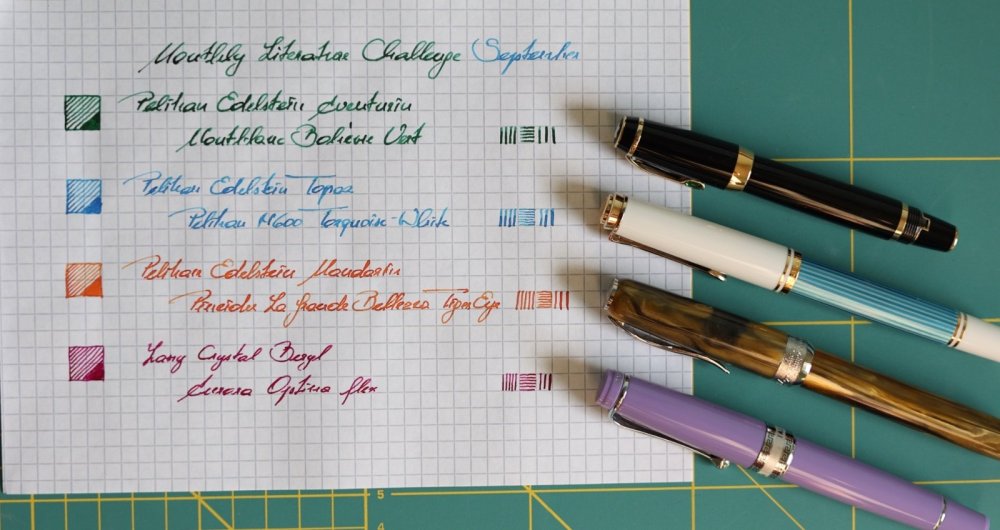 Monthly Literature Challenge September
Pelikan Edelstein Aventurin
Montblanc Bohème Vert
Pelikan Edelstein Topaz
Pelikan M600 Turquoise-White
Pelikan Edelstein Mandarin
Pineider La Grande Bellezza Tiger Eye
Lamy Crystal Beryl
Aurora Optima flex
5
4